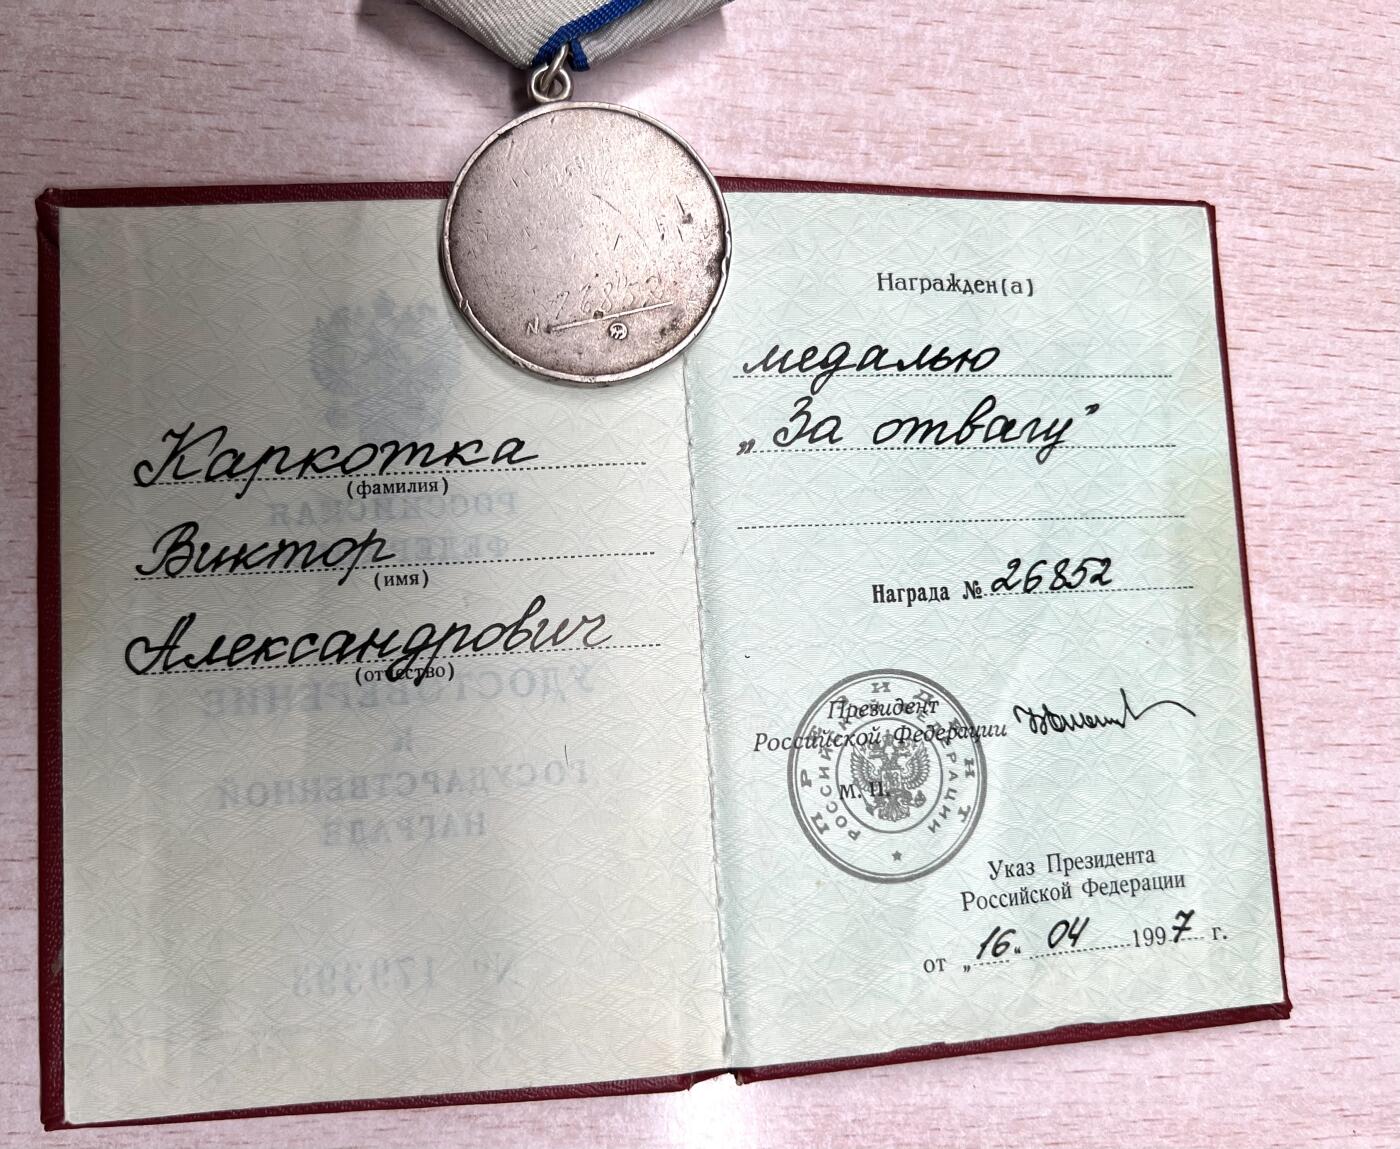 N 26852
Каркотка
(фамилия)
Виктор
(имя)
Александрович
(отчество)
РОССИЙСКАЯ
ФЕДЕРАЦИЯ
УДОСТОВЕРЕНИЕ
К
ГОСУДАРСТВЕННОЙ
НАГРАДЕ
Награжден(а)
медалью
„За отвагу”
Награда № 26852
Президент
Российской Федерации
М. П.
ПРЕЗИДЕНТ
РОССИЙСКОЙ ФЕДЕРАЦИИ
Указ Президента
Российской Федерации
от „16“ 04 1997 г.